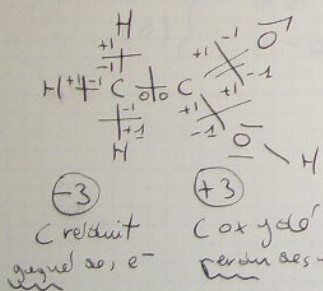 H
+1 -1 +1 -1 O
H +1 -1 C 0 0 C
-1 +1 +1 -1 O
H H
-3 +3
C réduit C oxydé
gagné des e- perdu des -